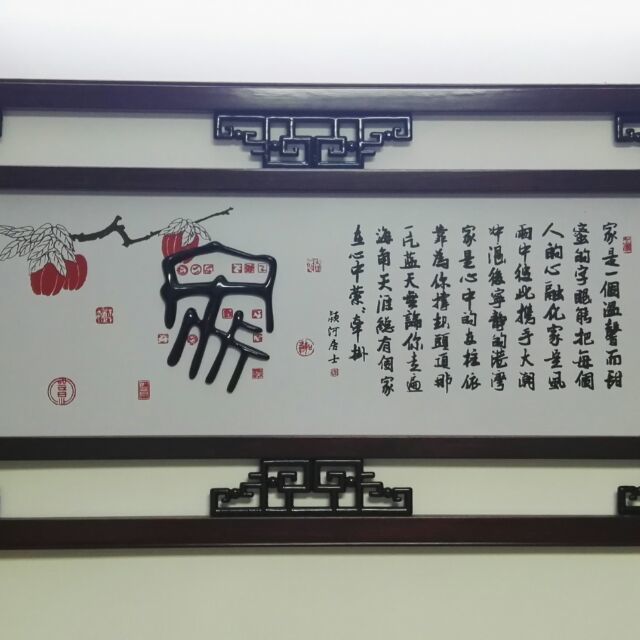 家是一個溫馨而甜
蜜的字眼能把每個
人的心融化家是風
雨中彼此攜手大潮
中退後寧靜的港灣
家是心中的支柱依
靠為你撐執頭頂那
一片藍天無論你走遍
海角天涯總有個家
在心中縈牽掛
潁河居士
家